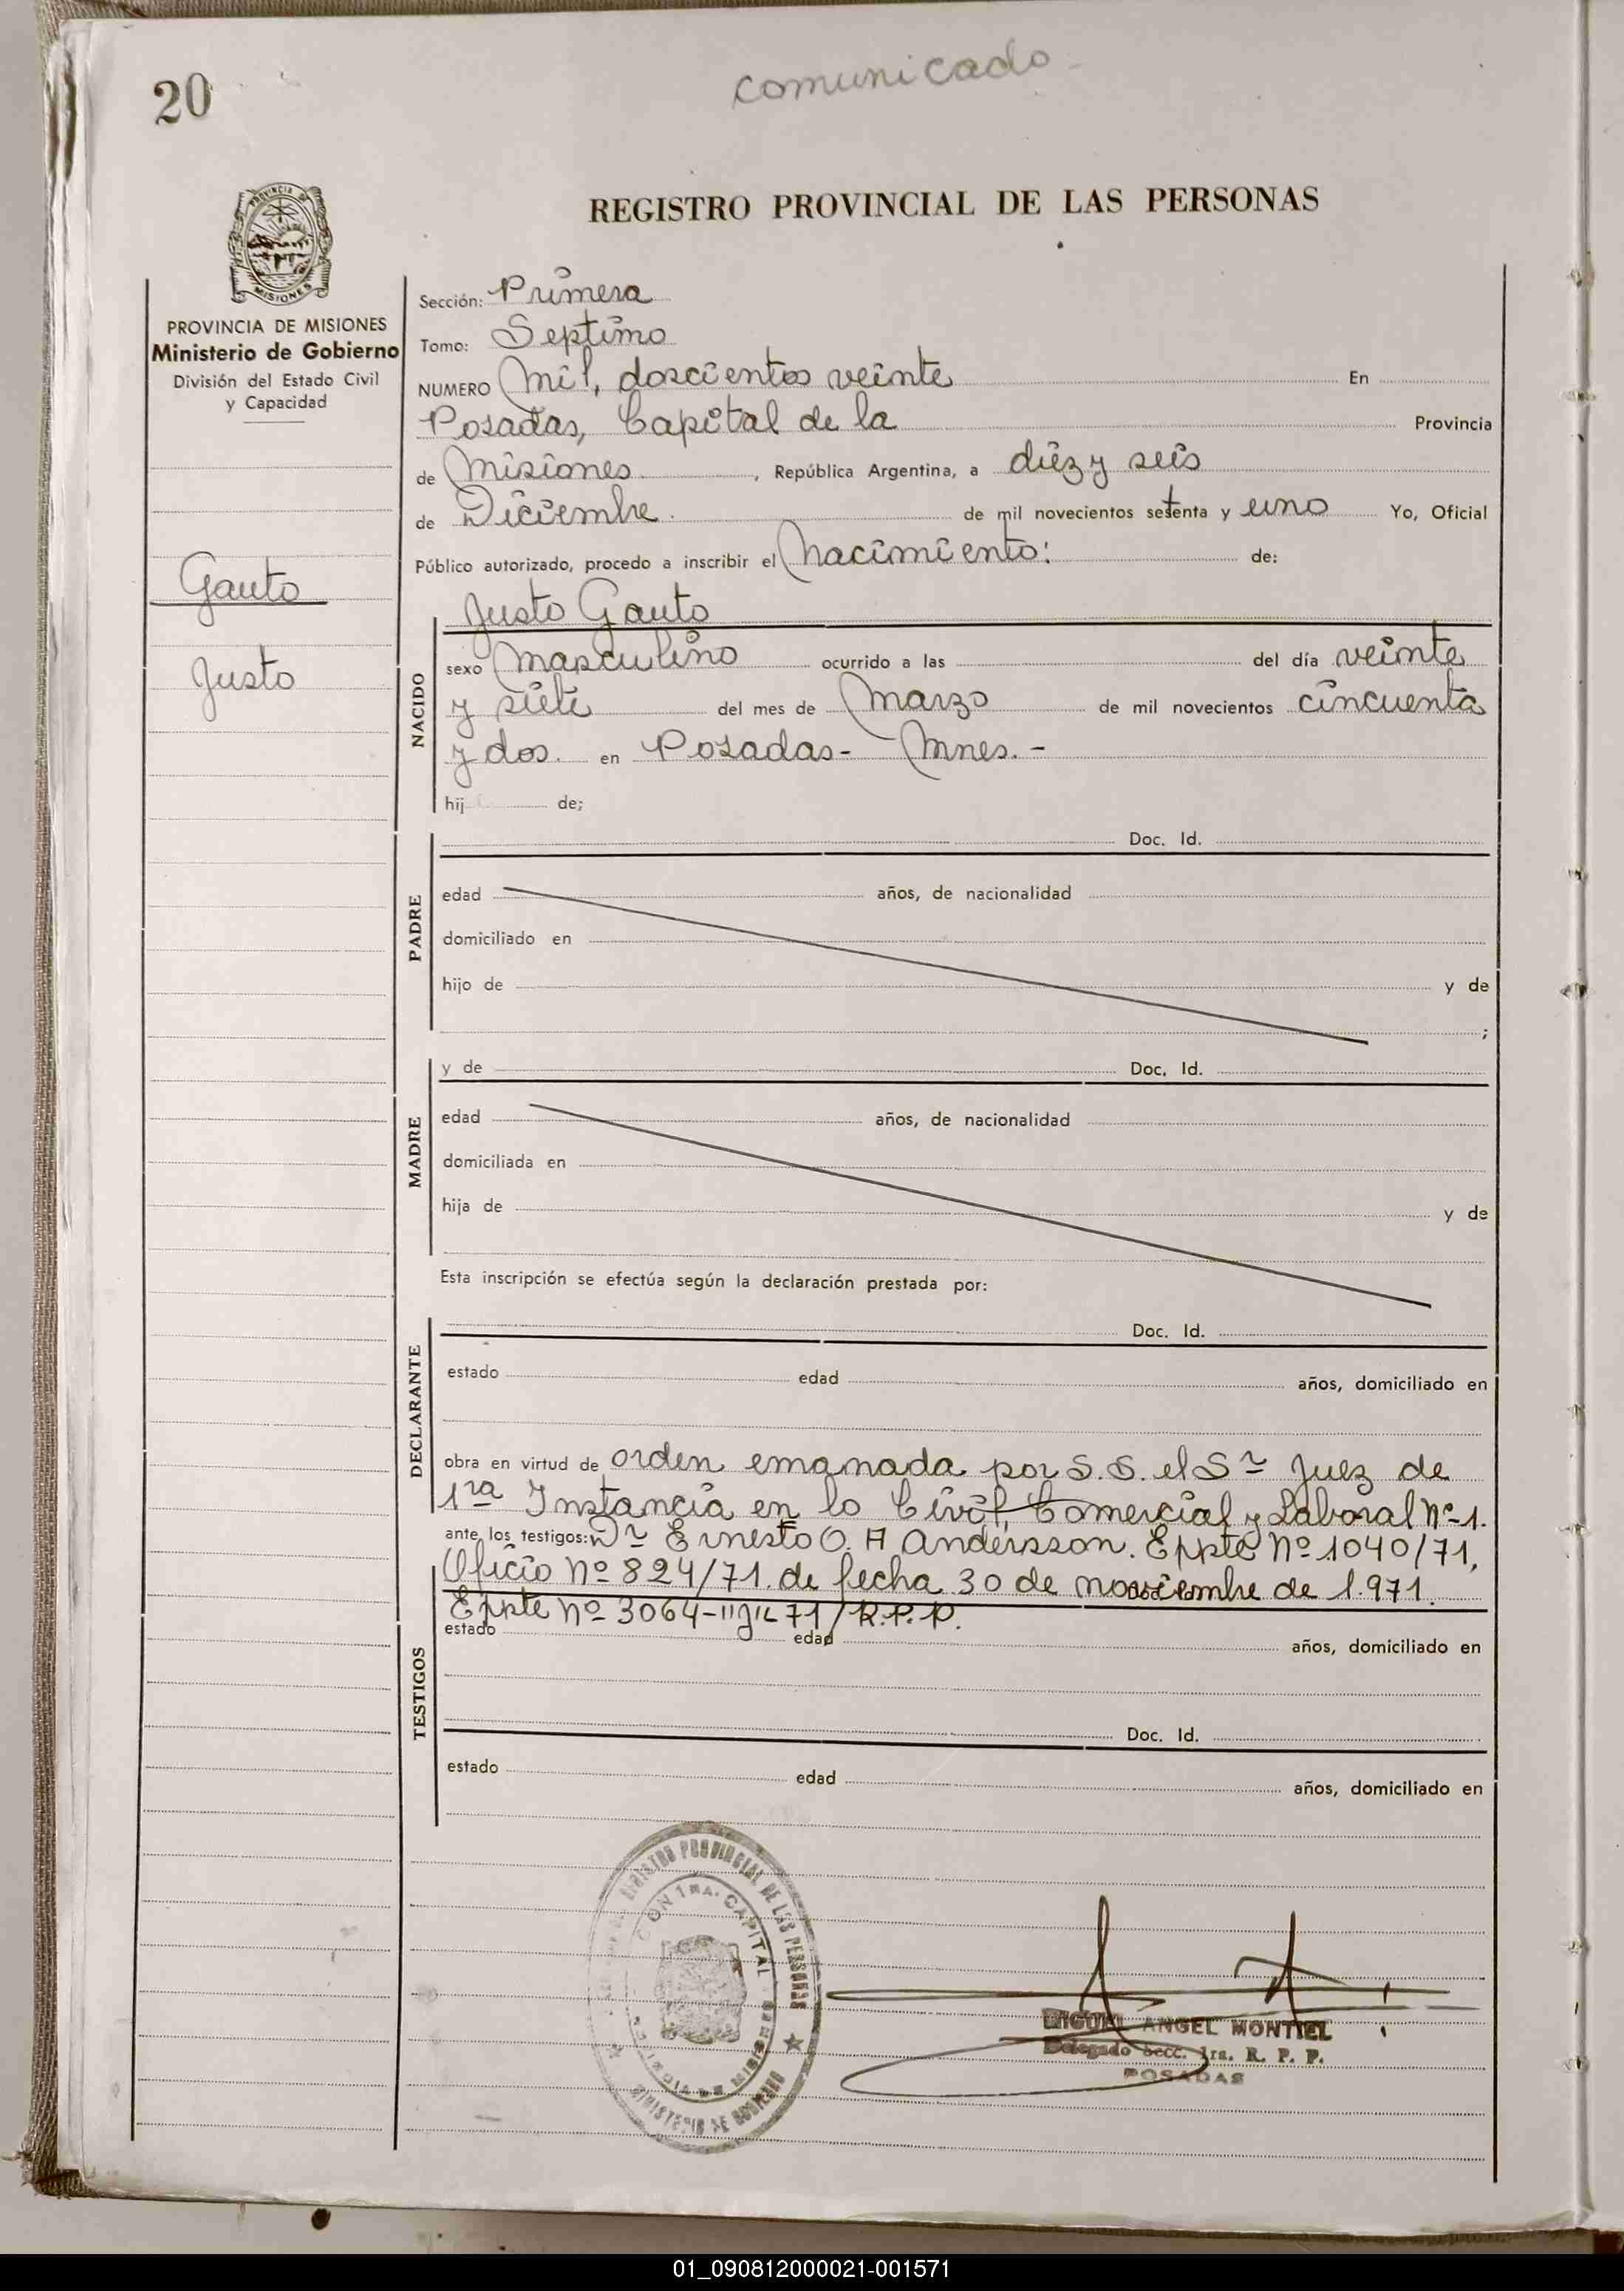 20
comunicado -
PROVINCIA DE
MISIONES
REGISTRO PROVINCIAL DE LAS PERSONAS
PROVINCIA DE MISIONES
Ministerio de Gobierno
División del Estado Civil
y Capacidad
Gauto
Justo
Sección: Primera
Tomo: Septimo
NUMERO Mil, doscientos veinte En
Posadas, Capital de la Provincia
de Misiones , República Argentina, a diez y seis
de Diciembre. de mil novecientos setenta y uno Yo, Oficial
Público autorizado, procedo a inscribir el Nacimiento: de:
Justo Gauto
NACIDO
sexo Masculino ocurrido a las del día veinte
y siete del mes de Marzo de mil novecientos cincuenta
y dos. en Posadas- Mnes.-
hij de;
PADRE
Doc. Id.
edad años, de nacionalidad
domiciliado en
hijo de y de
;
MADRE
y de Doc. Id.
edad años, de nacionalidad
domiciliada en
hija de y de
Esta inscripción se efectúa según la declaración prestada por:
DECLARANTE
Doc. Id.
estado edad años, domiciliado en
obra en virtud de orden emanada por S.S. el Sr Juez de
1ra Instancia en lo Civil, Comercial y Laboral Nº-1.
ante los testigos: Dr Ernesto O. A Andersson. Expte Nº 1040/71,
Oficio Nº 824/71. de fecha 30 de noviembre de 1.971.
Expte Nº 3064-"J"71/R.P.P.
TESTIGOS
estado edad años, domiciliado en
Doc. Id.
estado edad años, domiciliado en
REGISTRO PROVINCIAL DE LAS PERSONAS
CION 1RA. CAPITAL
MINISTERIO DE GOBIERNO
MIGUEL ANGEL MONTIEL
Delegado Secc. 1ra. R. P. P.
POSADAS
01_090812000021-001571